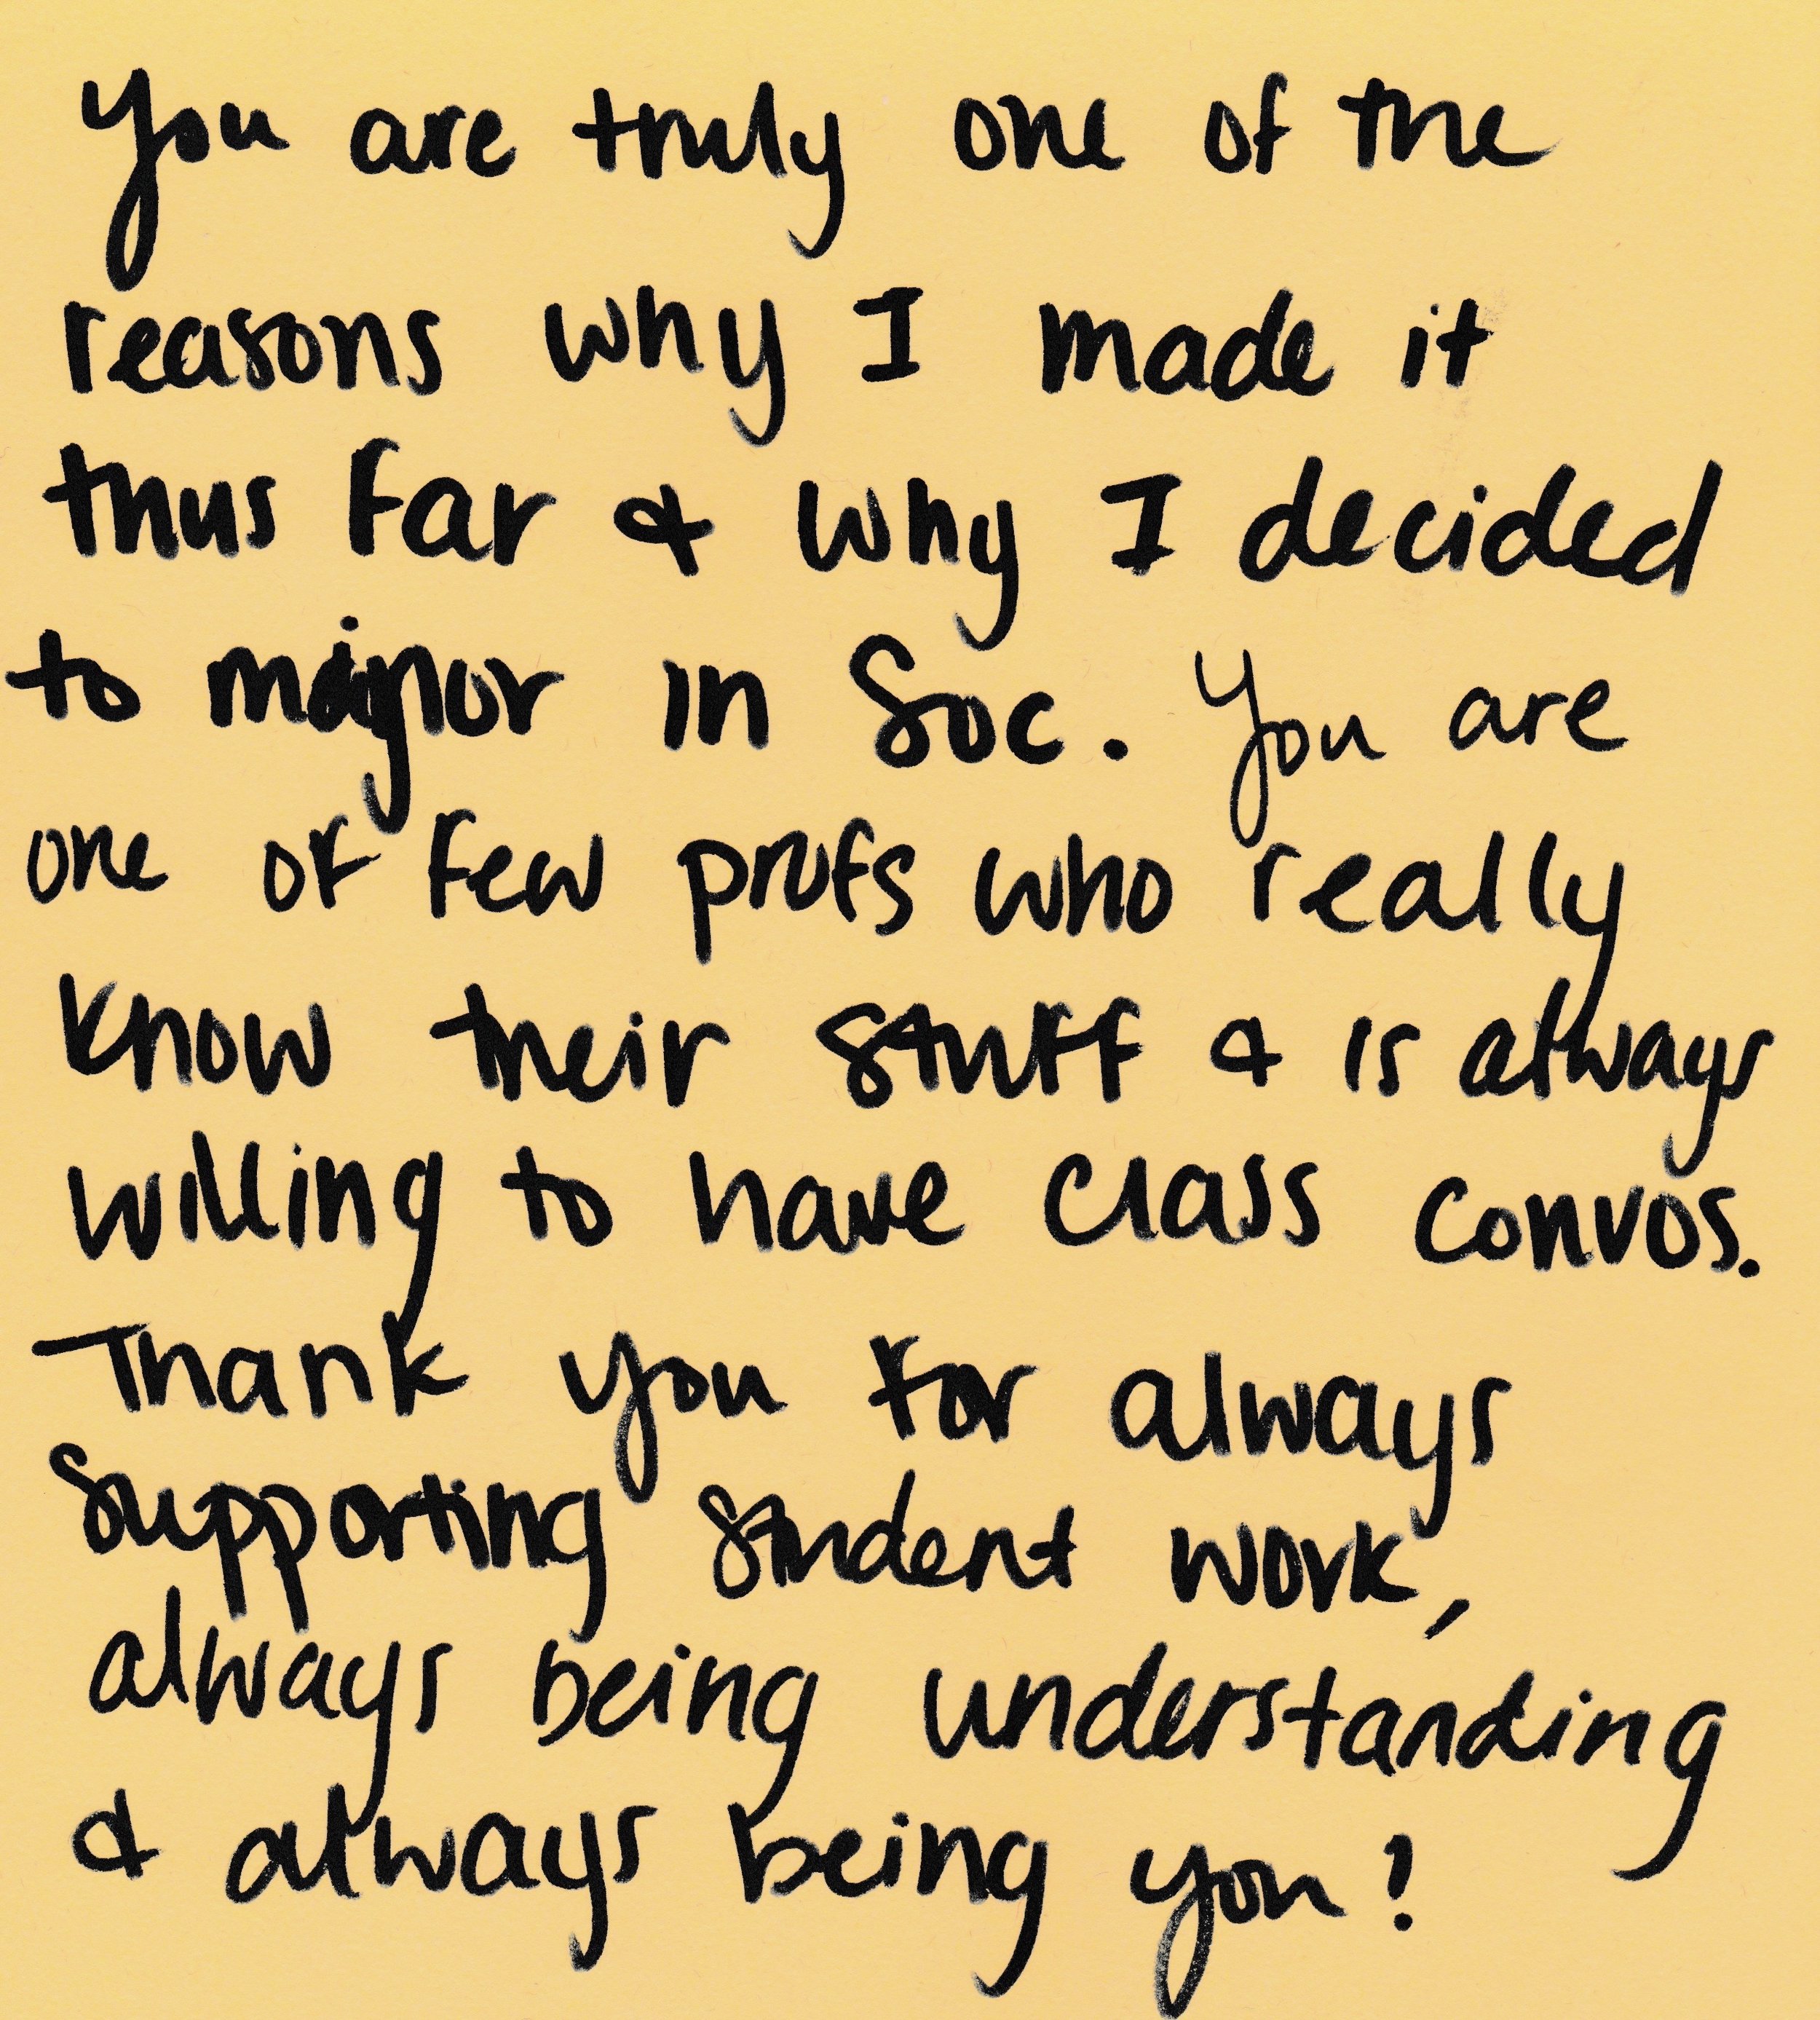 You are truly one of the
reasons why I made it
thus far & why I decided
to minor in Soc. You are
one of few profs who really
know their stuff & is always
willing to have class convos.
Thank you for always
supporting student work,
always being understanding
& always being you!